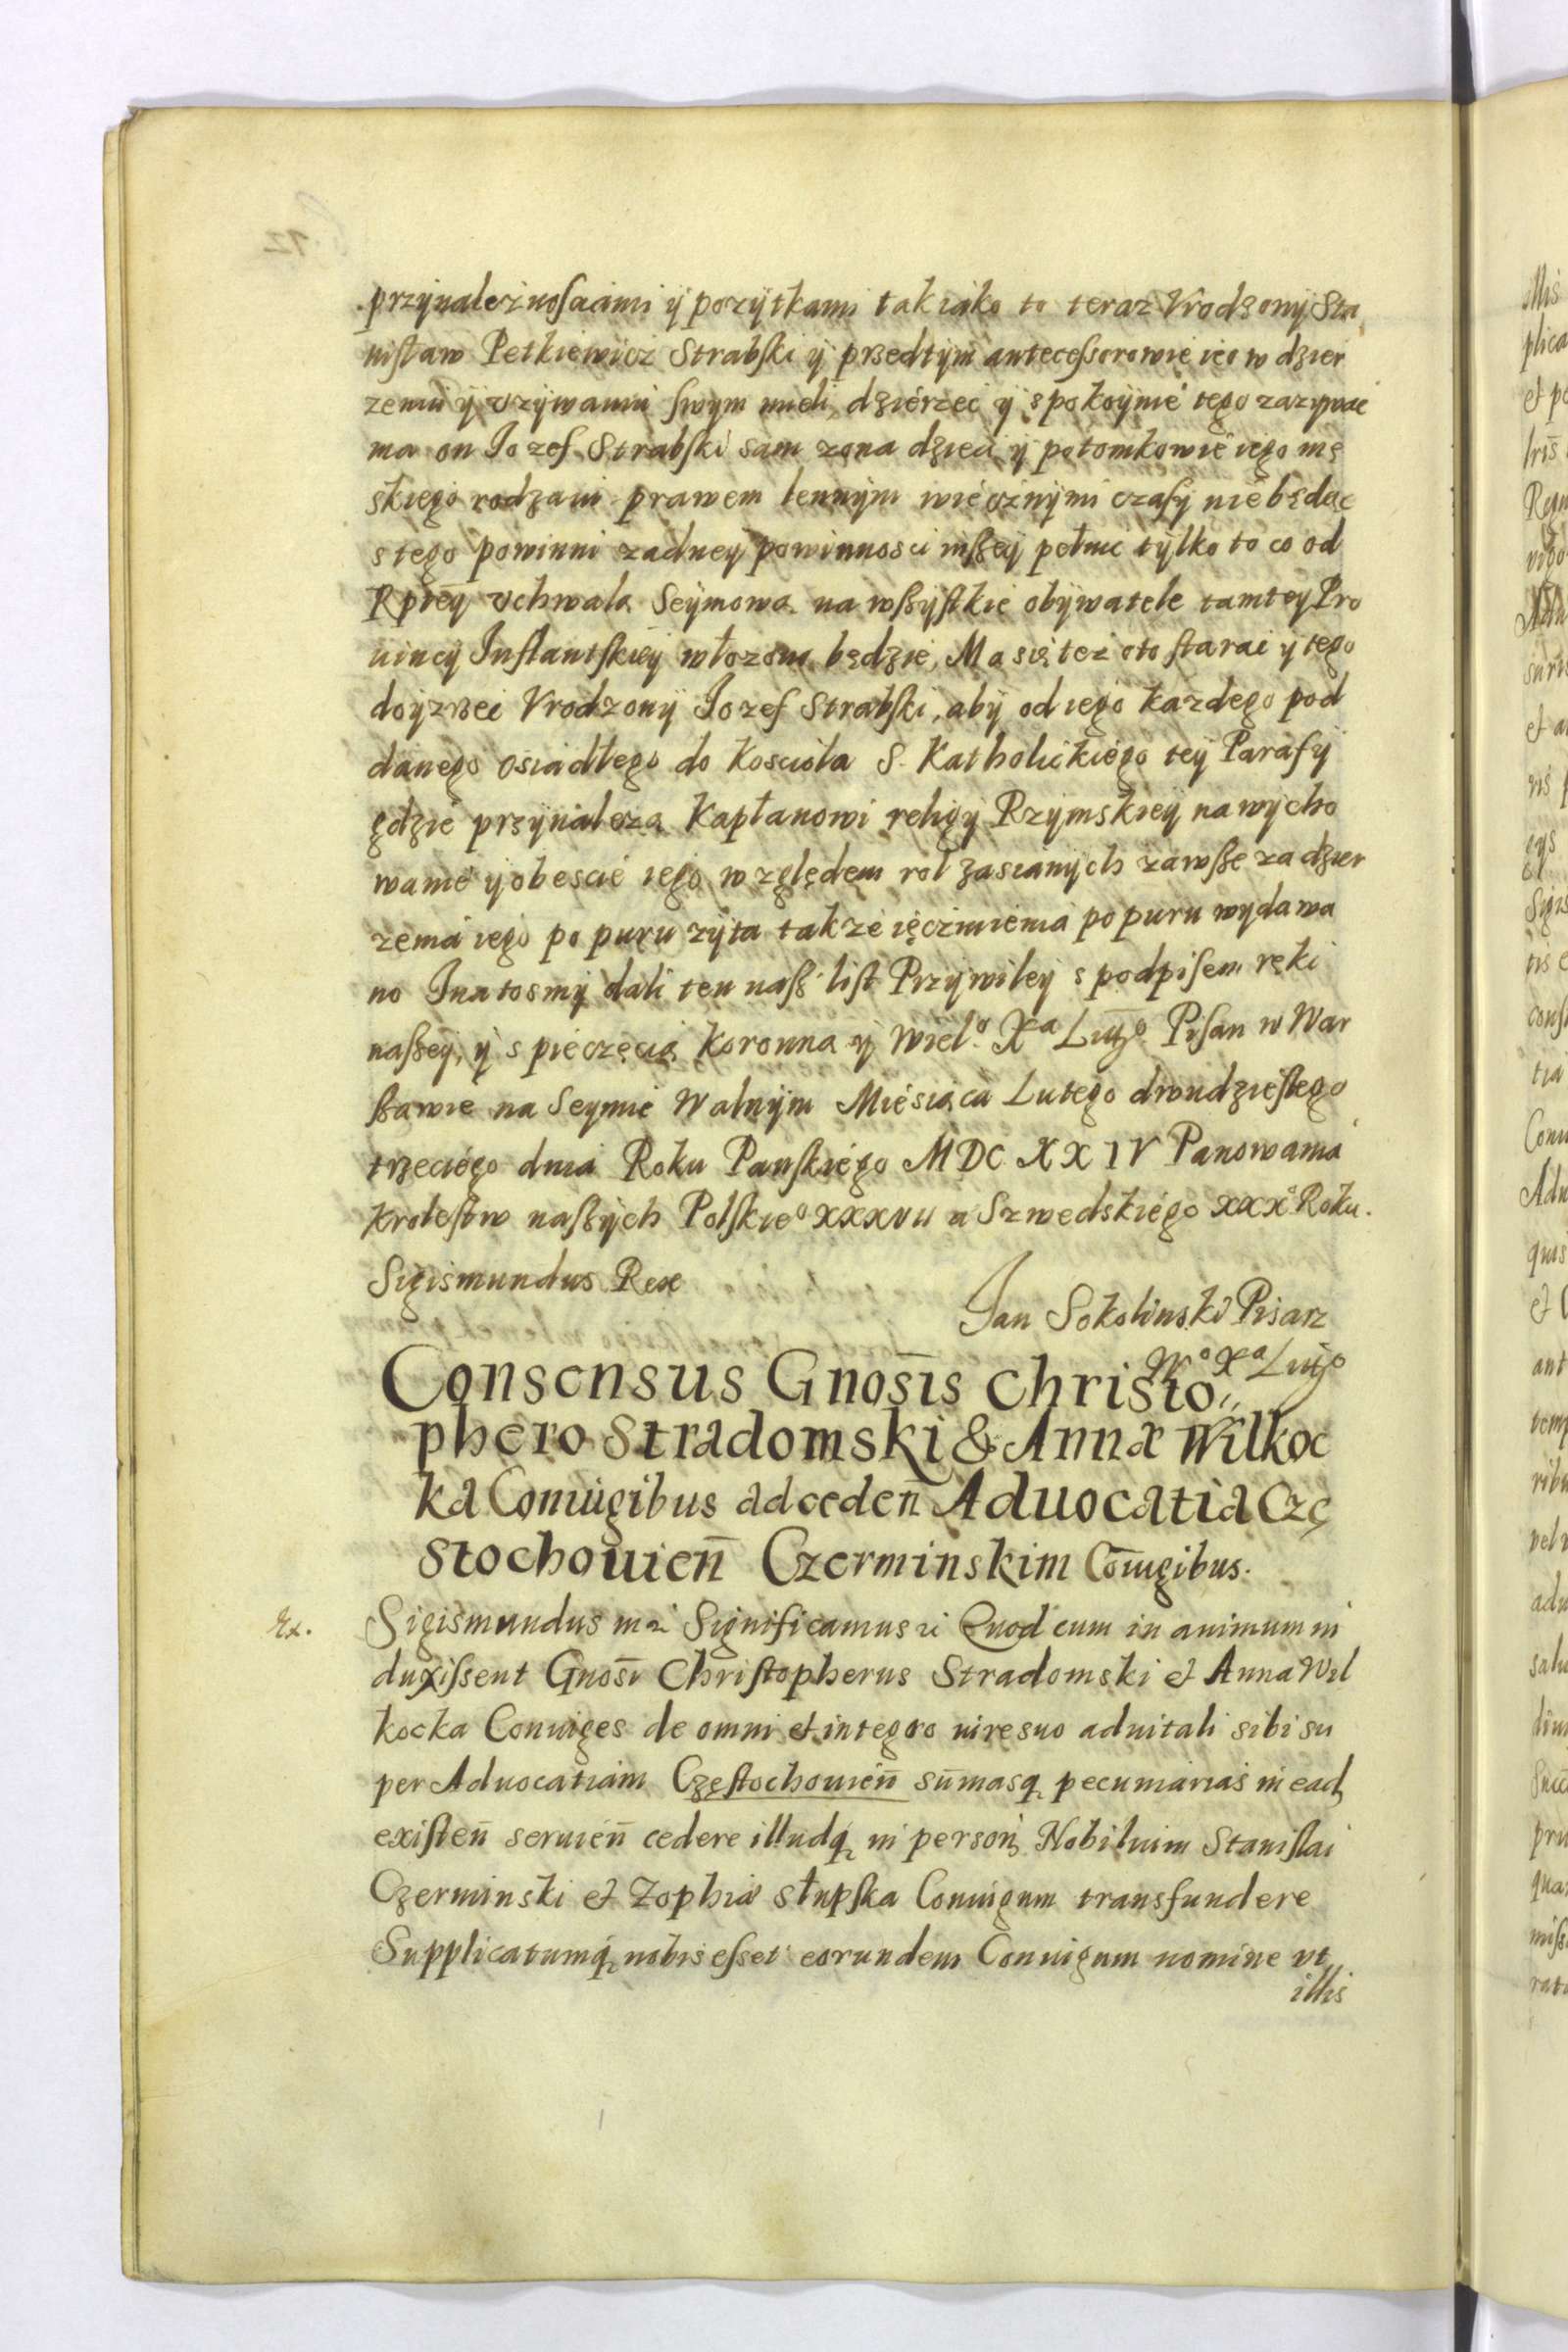 przynależnosciami ÿ pozÿtkami tak iako to teraz Vrodzonÿ Sta
nisław Petkiewicz Strabski ÿ przedtÿm antecessorowie ieo w dzier
zeniu ÿ vzÿwaniu swÿm mieli, dzierzec ÿ spokoÿnie tego zazÿwac
ma on Jozef Strabski sam zona dzieci ÿ potomkowie iego mę
skiego rodzaiu prawem lennÿm wiecznÿmi czasÿ nie będąc
s tego powinni zadneÿ powinnosci inszeÿ pełnic tÿlko to co od
Rpteÿ vchwałą Seÿmową na wszÿstkie obÿwatele tamteÿ Pro
uincÿ Inflantskieÿ włozono będzie, Ma się tez o to starac y tego
doÿzrzec Vrodzonÿ Jozef Strabski, abÿ od iego kazdego pod
danego osiadłego do koscioła S. Katholickiego teÿ Parafÿ
gdzie przÿnalezą Kapłanowi religÿ Rzÿmskieÿ na wÿcho
wanie ÿ obescie iego względem rol zasianÿch zawsze za dzier
zenia iego po puru zÿta takze ięczmienia po puru wÿdawa
no J na tosmÿ dali ten nasz list Przÿwileÿ s podpisem ręki
naszeÿ, ÿ s pieczęcią koronną ÿ Wielo Xa Litgo Pisan w War
szawie na Seÿmie Walnÿm Miesiąca Lutego dwudziestego
trzeciego dnia Roku Panskiego MDC XXIV Panowania
krolestw naszÿch Polskieo XXXVII a Szwedskiego XXXo Roku.
Sigismundus Rex
Jan Sokolinski Pisarz
Wo Xa Litgo
Consensus Gnosis Christo
phero Stradomski & Annæ Wilkoc
ka Coniugibus ad ceden Aduocatia Czę
stochouien Czerminskim Coniugibus.
Rx.
Sigismundus mri Significamus ti Quod cum in animum in
duxissent Gnosi Christopherus Stradomski et Anna Wil
kocka Coniuges de omni et integro iure suo aduitali sibi su
per Aduocatiam Częstochouien summasq pecuniarias in ead
existen seruien cedere illudq in person Nobilium Stanislai
Czerminski et Zophiæ Słupska Coniugum transfundere
Supplicatumq nobis esset eorundem Coniugum nomine vt
illis